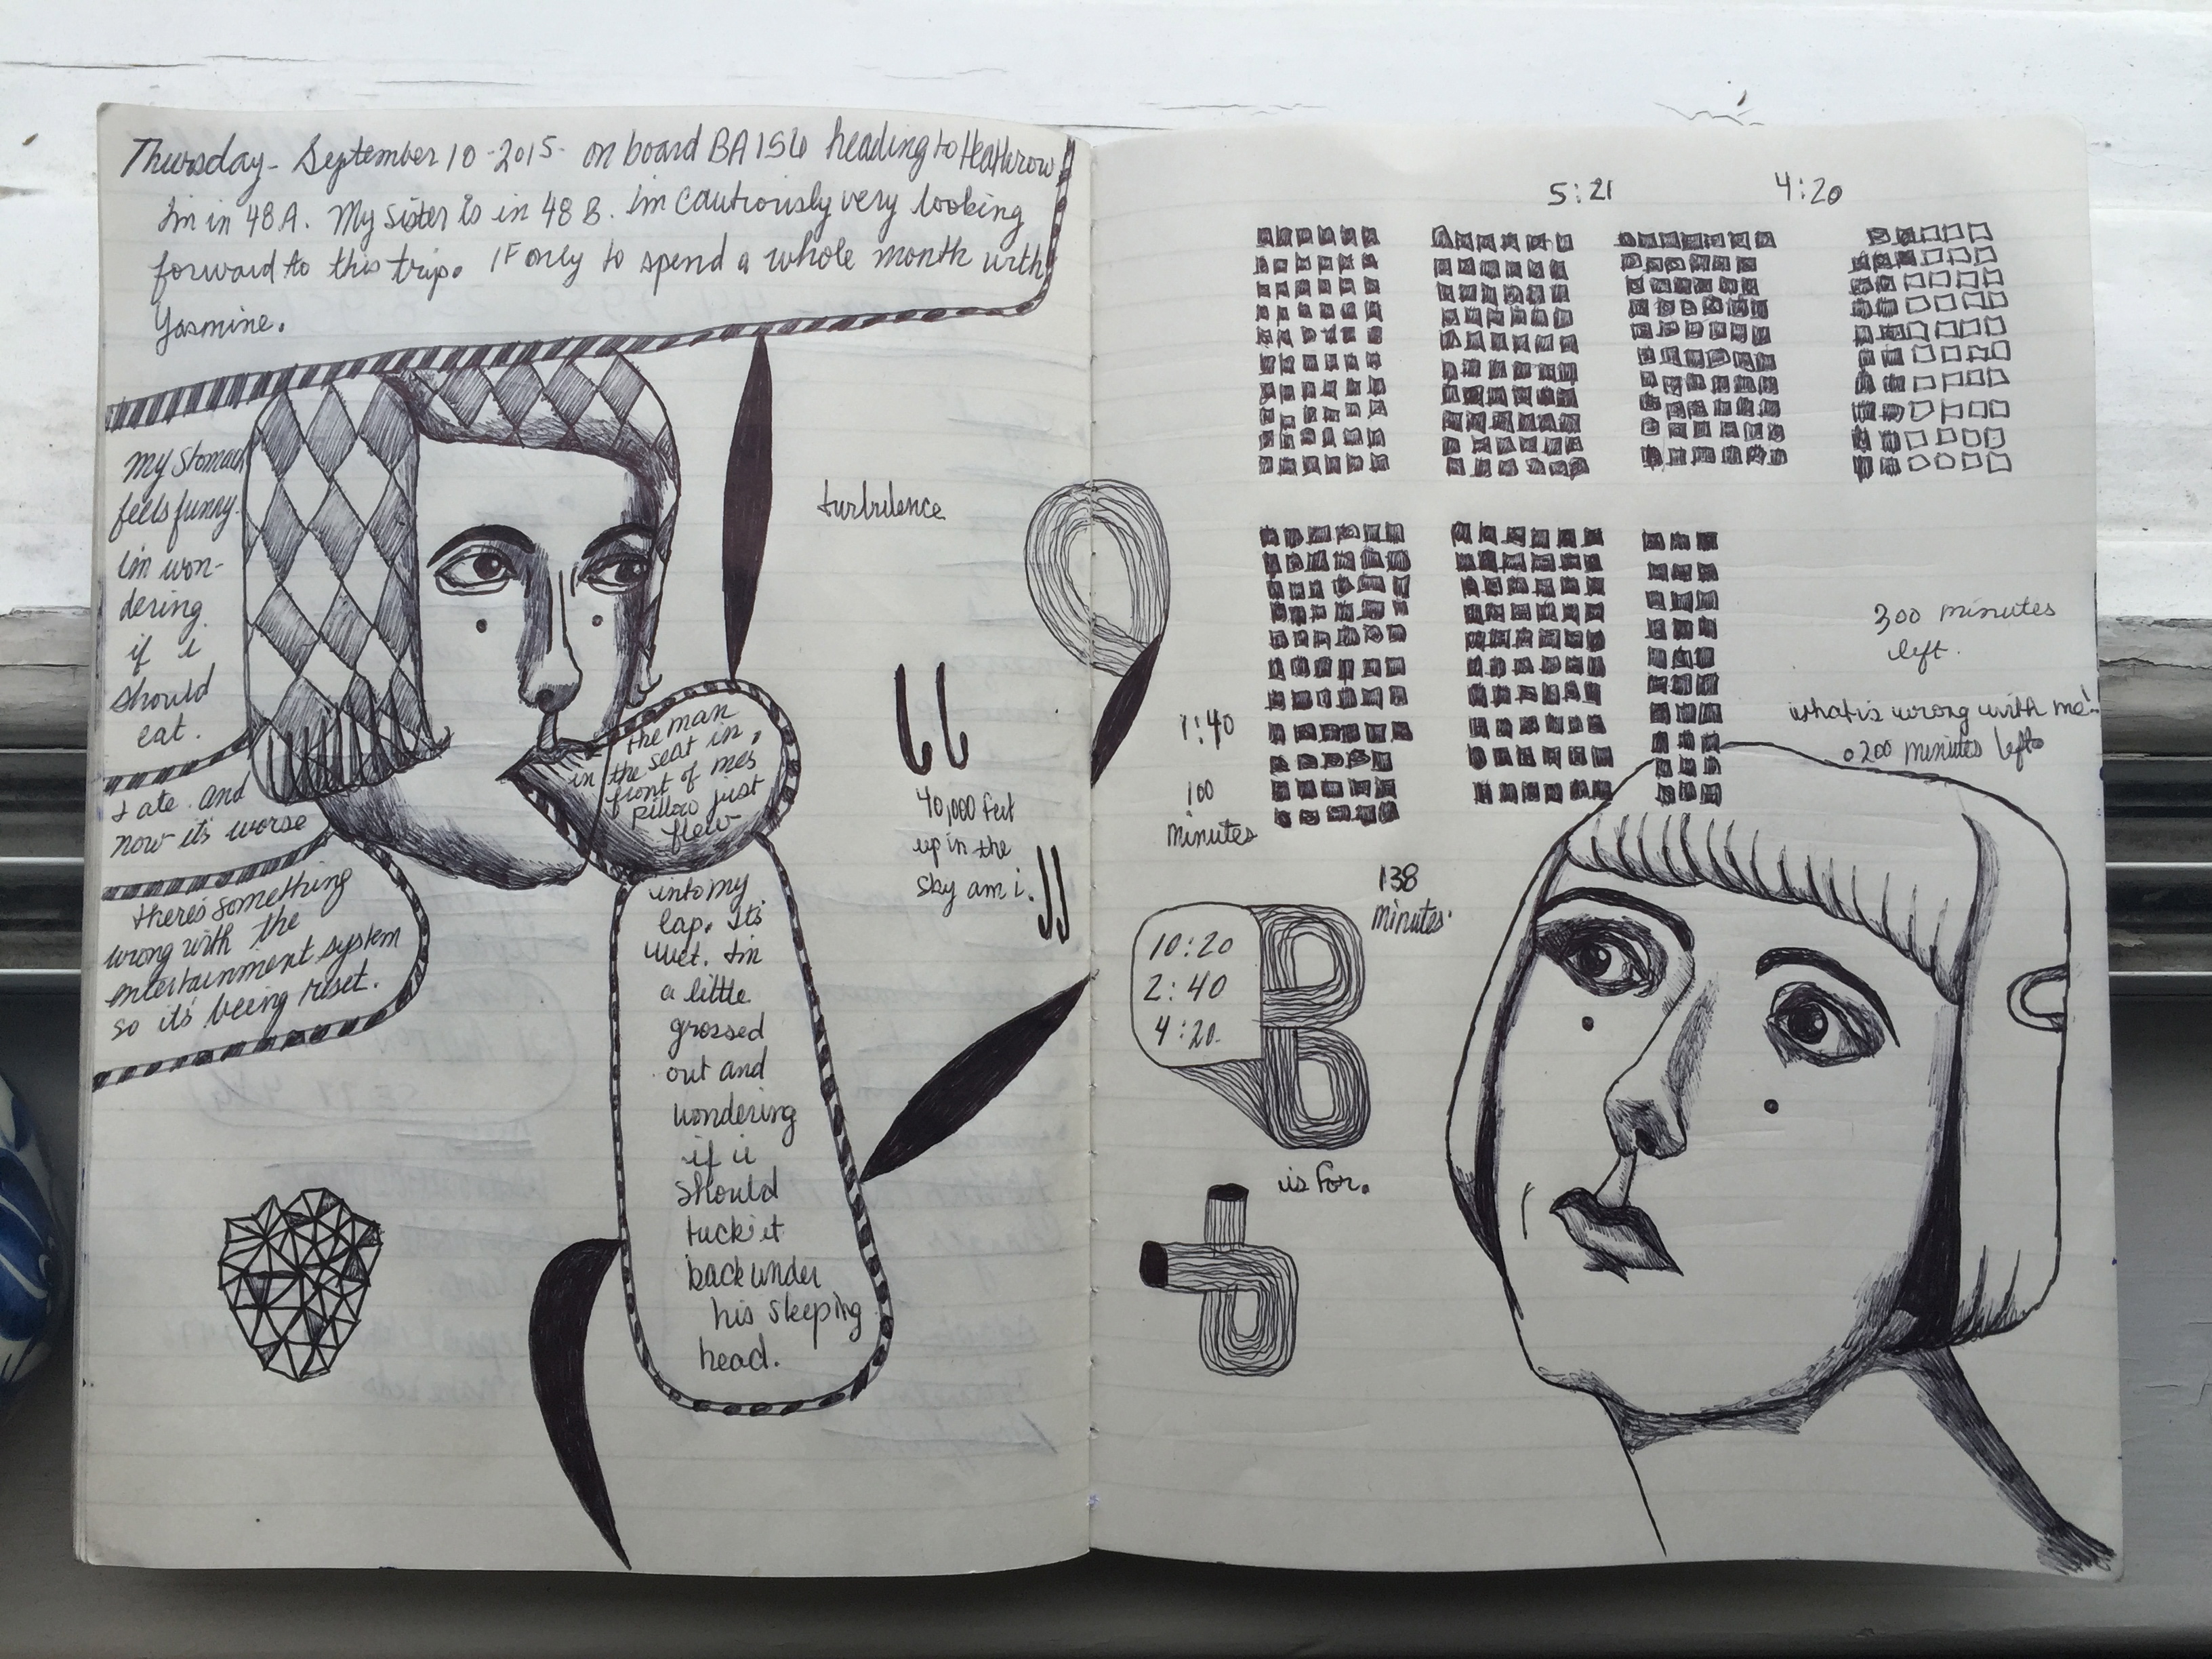 Thursday - September 10 - 2015 - on board BA156 heading to Heathrow
Im in 48A. My Sister is in 48 B. Im cautiously very looking
forward to this trip. IF only to spend a whole month with
Yasmine.
my stomach
feels funny.
im won-
dering
if i
should
eat.
I ate. and
now it's worse
there's something
wrong with the
entertainment system
so it's being reset.
the man
in the seat in,
front of mes
pillow just
flew
into my
lap. Its
wet. Im
a little
grossed
out and
wondering
if i
should
tuck it
back under
his sleeping
head.
turbulence
40,000 feet
up in the
sky am i.
5:21 4:20
300 minutes
left.
what is wrong with me!
200 minutes left
1:40
100
minutes
138
minutes.
10:20
2:40
4:20.
B
is for.